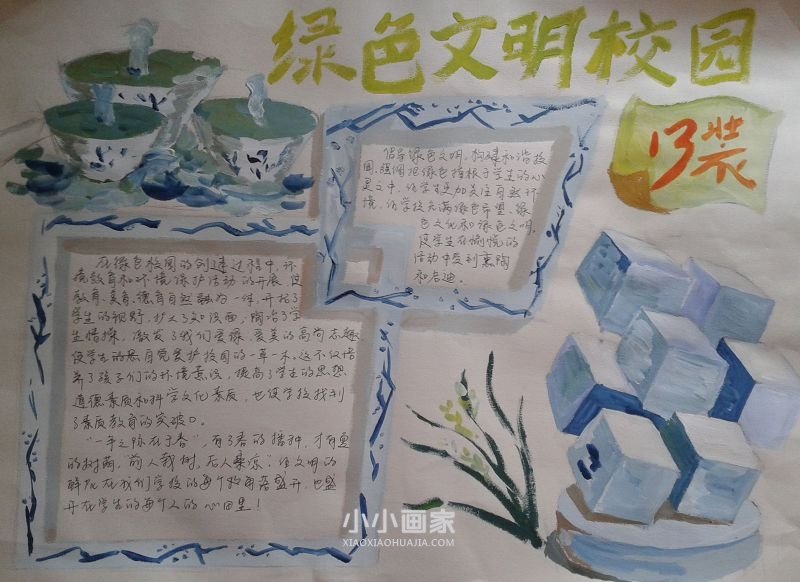 绿色文明校园
13装
倡导绿色文明,构建和谐校
园,强调把绿色植根于学生的心
灵之中,让学生更加关注自然环
境,让学校充满绿色希望、绿
色文化和绿色文明,
使学生在愉悦的
活动中受到熏陶
和启迪。
在绿色校园的创建过程中,环
境教育和环境保护活动的开展,使
教育、美育、德育自然融为一体,开拓了
学生的视野,扩大了知识面,陶冶了学
生情操,激发了我们爱绿、爱美的高尚志趣
使学生自觉爱护校园的一草一木,这不仅培
养了孩子们的环境意识,提高了学生的思想
道德素质和科学文化素质,也使学校找到
了素质教育的突破口。
"一年之际在于春",有了春的播种,才有夏
的树荫,前人栽树,后人乘凉,让文明的
鲜花在我们学校的每个角落盛开,也盛
开在学生的每个人的心田里!
小小画家
XIAOXIAOHUAJIA.COM